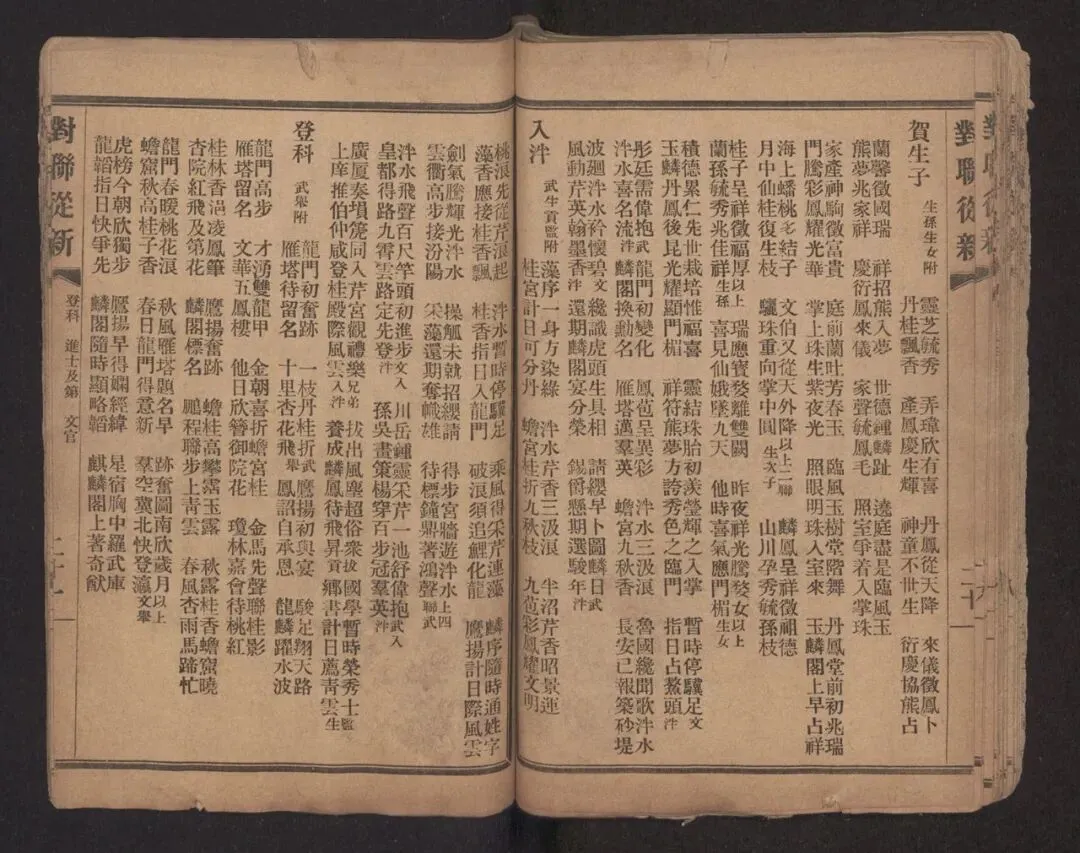 對聯從新
二十一
賀生子 生孫生女附
靈芝毓秀 弄璋欣有喜 丹鳳從天降 來儀徵鳳卜
丹桂飄香 產鳳慶生輝 神童不世生 衍慶協熊占
蘭馨徵國瑞 祥招熊入夢 世德鍾麟趾 遶庭盡是臨風玉
熊夢兆家祥 慶衍鳳來儀 家聲毓鳳毛 照室爭着入掌珠
家產神駒徵富貴 庭前蘭吐芳春玉 臨風玉樹堂堦舞 丹鳳堂前初兆瑞
門騰彩鳳耀光華 掌上珠生紫夜光 照眼明珠入室來 玉麟閣上早占祥
海上蟠桃多結子 文伯又從天外降以上二聯 麟鳳呈祥徵祖德
月中仙桂復生枝 驪珠重向掌中圓生次子 山川孕秀毓孫枝
桂子呈祥徵福厚以上 瑞應寶婺離雙闕 昨夜祥光騰婺女以上
蘭孫毓秀兆佳祥生孫 喜見仙娥墜九天 他時喜氣應門楣生女
積德累仁先世栽培惟福喜 靈結珠胎初羨瑩輝之入掌 暫時停驥足文
玉麟丹鳳後昆光耀顯門楣 祥符熊夢方誇秀色之臨門 指日占鰲頭泮
彤廷需偉抱武 龍門初變化 鳳苞呈異彩 泮水三汲浪 魯國纔聞歌泮水
泮水喜名流泮 麟閣換勳名 雁塔邁羣英 蟾宮九秋香 長安已報築砂堤
波廻泮水衿懷碧文 纔識虎頭生具相 請纓早卜圖麟日武
風動芹英翰墨香泮 還期麟閣宴分榮 錫爵懸期選駿年泮
入泮 武生貢監附
藻序一身方染綠 泮水芹香三汲浪 半沼芹香昭景運
桂宮計日可分丹 蟾宮桂折九秋枝 九苞彩鳳耀文明
桃浪先從芹浪起 泮水暫時停驥足 乘風得采芹連藻 麟序隨時通姓字
藻香應接桂香飄 桂香指日入龍門 破浪須追鯉化龍 鷹揚計日際風雲
劍氣騰輝光泮水 操觚未就招纓請 得步宮牆遊泮水上四
雲衢高步接汾陽 采藻還期奪幟雄 待標鐘鼎著鴻聲聯武
泮水飛聲百尺竿頭初進步文入 川岳鍾靈采芹一池舒偉抱武入
皇都得路九霄雲路定先登泮 孫吳畫策楊穿百步冠羣英泮
廣厦奏塤箎同入芹宮觀禮樂兄弟 拔出風塵超俗衆拔 國學暫時榮秀士監
上庠推伯仲咸登桂殿際風雲入泮 養成麟鳳待飛昇貢 鄉書計日薦靑雲生
登科 武舉附
龍門初奮跡 一枝丹桂折武 鷹揚初與宴 駿足翔天路
雁塔待留名 十里杏花飛舉 鳳詔自承恩 龍麟躍水波
龍門高步 才湧雙龍甲 金朝喜折蟾宮桂 金馬先聲聯桂影
雁塔留名 文華五鳳樓 他日欣簪御院花 瓊林嘉會待桃紅
桂林香浥凌鳳筆 鷹揚奮跡 蟾桂高攀霑玉露 秋露桂香蟾窟曉
杏院紅飛及第花 麟閣標名 鵬程聯步上靑雲 春風杏雨馬蹄忙
龍門春暖桃花浪 秋風雁塔題名早 跡奮圖南欣歲月以上
蟾窟秋高桂子香 春日龍門得意新 羣空冀北快登瀛文舉
虎榜今朝欣獨步 鷹揚早得嫻經緯 星宿胸中羅武庫
龍韜指日快爭先 麟閣隨時顯略韜 麒麟閣上著奇猷
對聯從新
登科 進士及第 文官